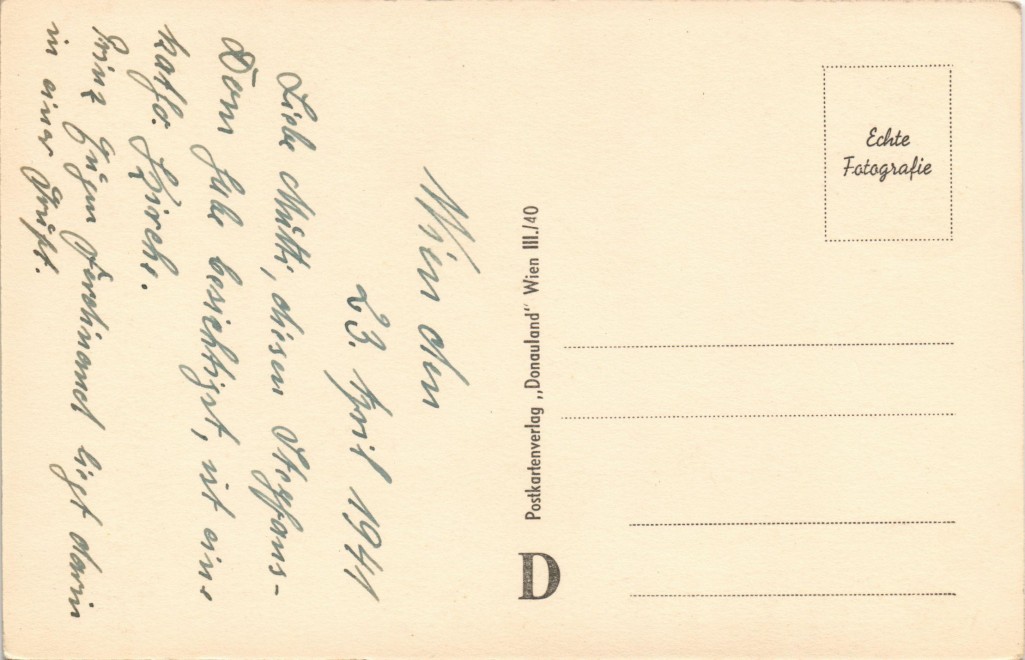 Wien den
23. April 1941
Liebe Mutti, diesen Steffans-
Dom habe besichtigt, ist eine
katho. Kirche.
Prinz Eugen Ferdinand liegt darin
in einer Gruft.
Postkartenverlag „Donauland" Wien III./40
D
Echte
Fotografie